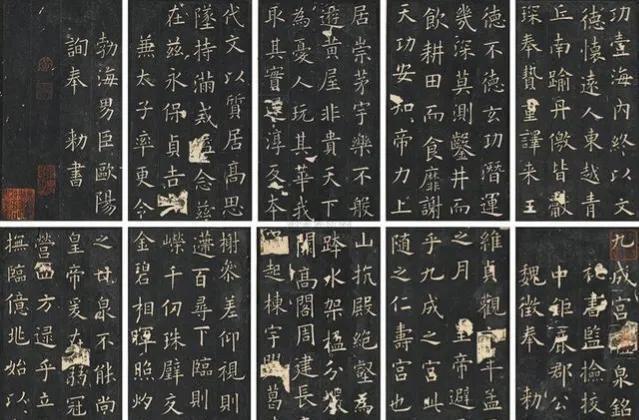 功壹海內終以文
德懷遠人東越青
丘南踰丹徼皆獻
琛奉贄重譯来王
德不德玄功潛運
幾深莫測鑿井而
飲耕田而食靡謝
天功安知帝力上
居崇茅宇樂不般
遊黃屋非貴天下
為憂人玩其華我
取其實還淳反本
代文以質居高思
墜持滿戒溢念茲
在茲永保貞吉
兼太子率更令
勃海男臣歐陽
詢奉 勑書
九成宮醴泉銘
秘書監撿挍
中鉅鹿郡公
魏徵奉 勑
維貞觀 年孟
之月 皇帝避
乎九成之宮此
隨之仁壽宮也
山抗殿絕壑為
跨水架楹分巖
開高閣周建長
起棟宇 葛
榭參差仰視則
遰百尋下臨則
嶸千仞珠璧交
金碧相暉照灼
之甘泉不能尚
皇帝爰在弱冠
營四方逮乎立
撫臨億兆始以